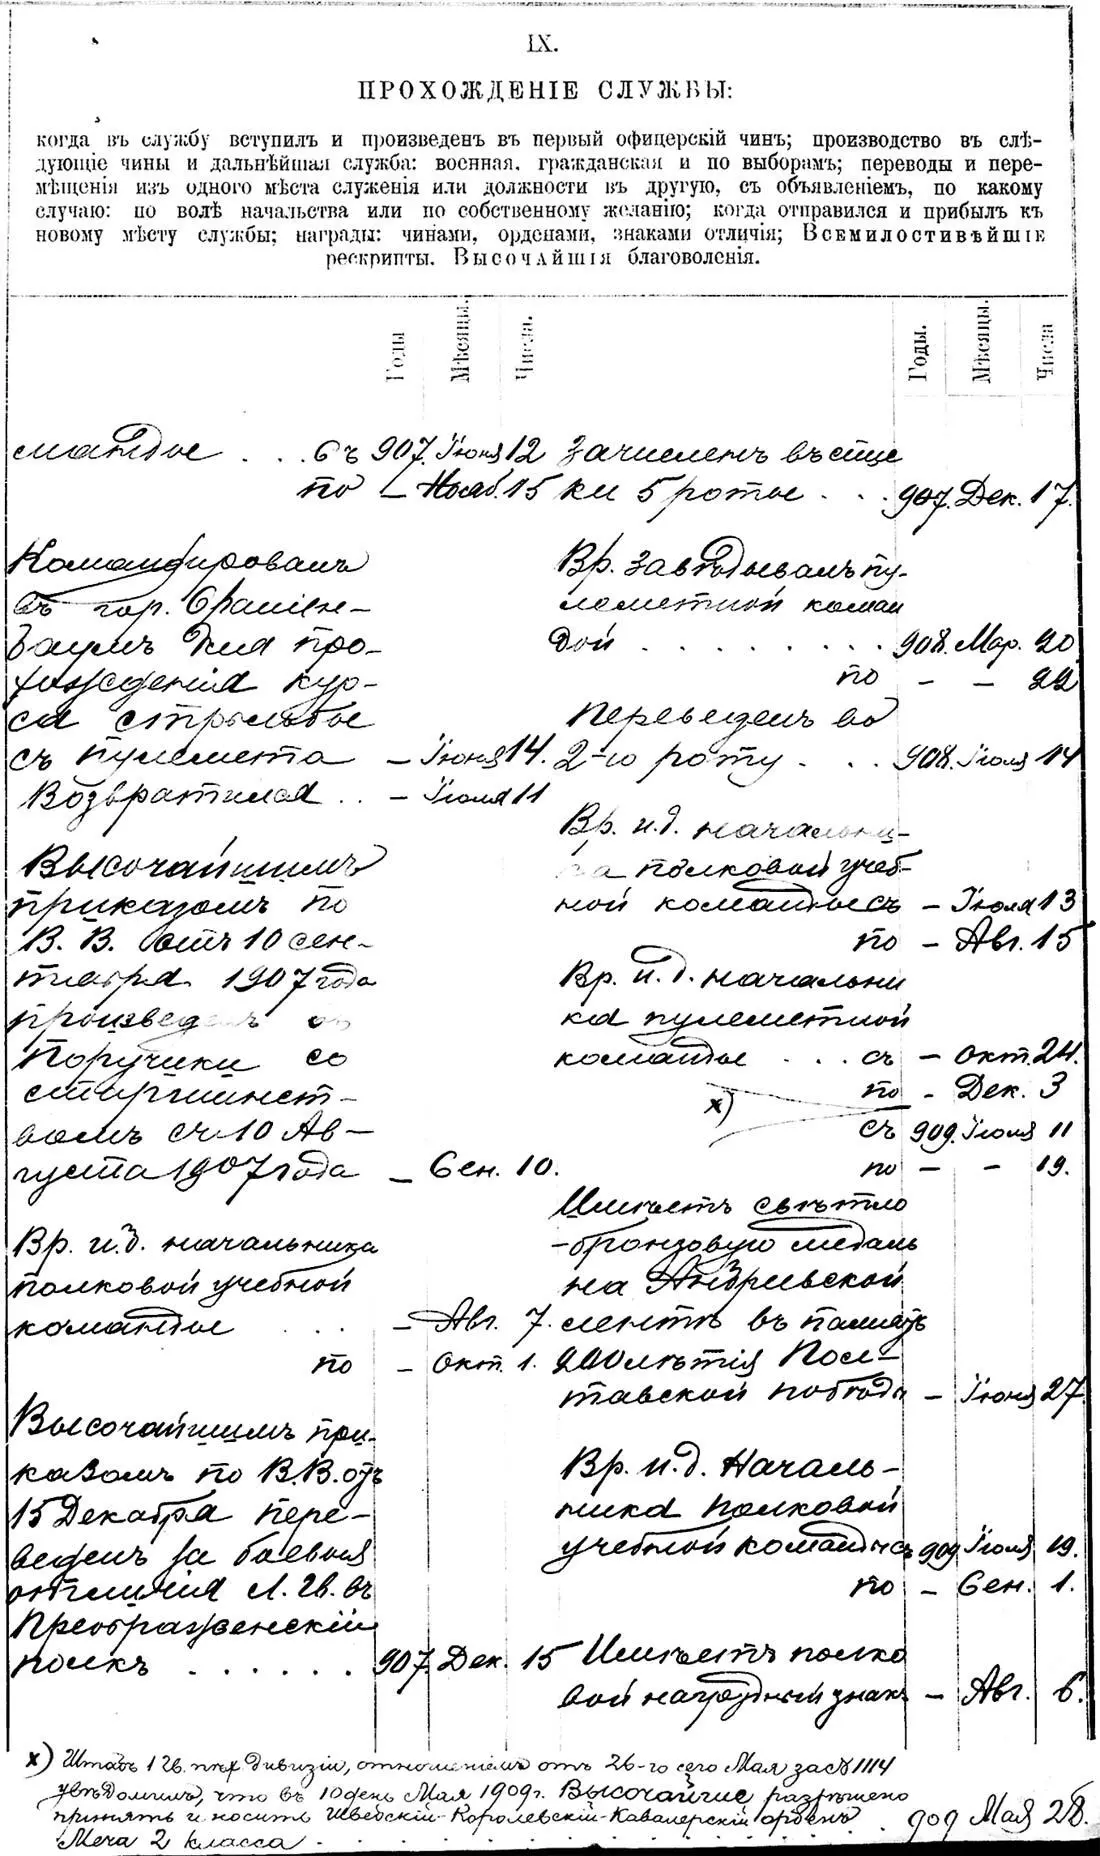 IX.
ПРОХОЖДЕНІЕ СЛУЖБЫ:
когда въ службу вступилъ и произведенъ въ первый офицерскій чинъ; производство въ слѣ-
дующіе чины и дальнѣйшая служба: военная, гражданская и по выборамъ; переводы и пере-
мѣщенія изъ одного мѣста служенія или должности въ другую, съ объявленіемъ, по какому
случаю: по волѣ начальства или по собственному желанію; когда отправился и прибылъ къ
новому мѣсту службы; награды: чинами, орденами, знаками отличія; Всемилостивѣйшіе
рескрипты, Высочайшія благоволенія.
Годы Мѣсяцы. Числа.
мандѣ . . . съ 907. Іюня 12
по — Нояб. 15
Командированъ
въ гор. Ораніен-
баумъ для про-
хожденія кур-
са стрѣльбы
съ пулемета — Іюня 14.
Возвратился . . — Іюля 11
Высочайшимъ
приказомъ по
В. В. отъ 10 сен-
тября 1907 года
произведенъ въ
Поручики со
старшинст-
вомъ съ 10 Ав-
густа 1907 года — Сен. 10.
Вр. и. д. начальника
полковой учебной
команды . . . — Авг. 7.
по — Окт. 1.
Высочайшимъ при-
казомъ по В. В. отъ
15 Декабря пере-
веденъ за боевыя
отличія Л. Гв. въ
Преображенскій
полкъ . . . . . . 907 Дек. 15
Годы. Мѣсяцы. Числа
Зачисленъ въ спис
ки 5 роты . . . 907. Дек. 17.
Вр. завѣдывалъ пу-
леметной коман
дой . . . . . . . . . 908. Мар. 20
по — — 22
Переведенъ во
2-ю роту . . . 908. Іюля 14
Вр. и. д. начальни-
ка полковой учеб-
ной команды съ — Іюля 13
по — Авг. 15
Вр. и. д. начальни
ка пулеметной
команды . . . съ — Окт. 24.
по - Дек. 3
х)
съ 909. Іюля 11
по — — 19.
Имѣетъ свѣтло
-бронзовую медаль
на Андреевской
лентѣ въ память
200лѣтія Пол-
тавской побѣды — Іюня 27.
Вр. и. д. Началь-
ника полковой
учебной команды съ 909 Іюля 19.
по — Сен. 1.
Имѣетъ полко
вой нагрудный знакъ — Авг. 6.
х) Штабъ 1 Гв. пѣх. дивизіи, отношеніемъ отъ 26-го сего Мая за № 1114
увѣдомилъ, что въ 10 день Мая 1909 г. Высочайше разрѣшено
принять и носить Шведскій-Королевскій-Кавалерскій орденъ
Меча 2 класса . . . . . . . . . . 909 Мая 28.